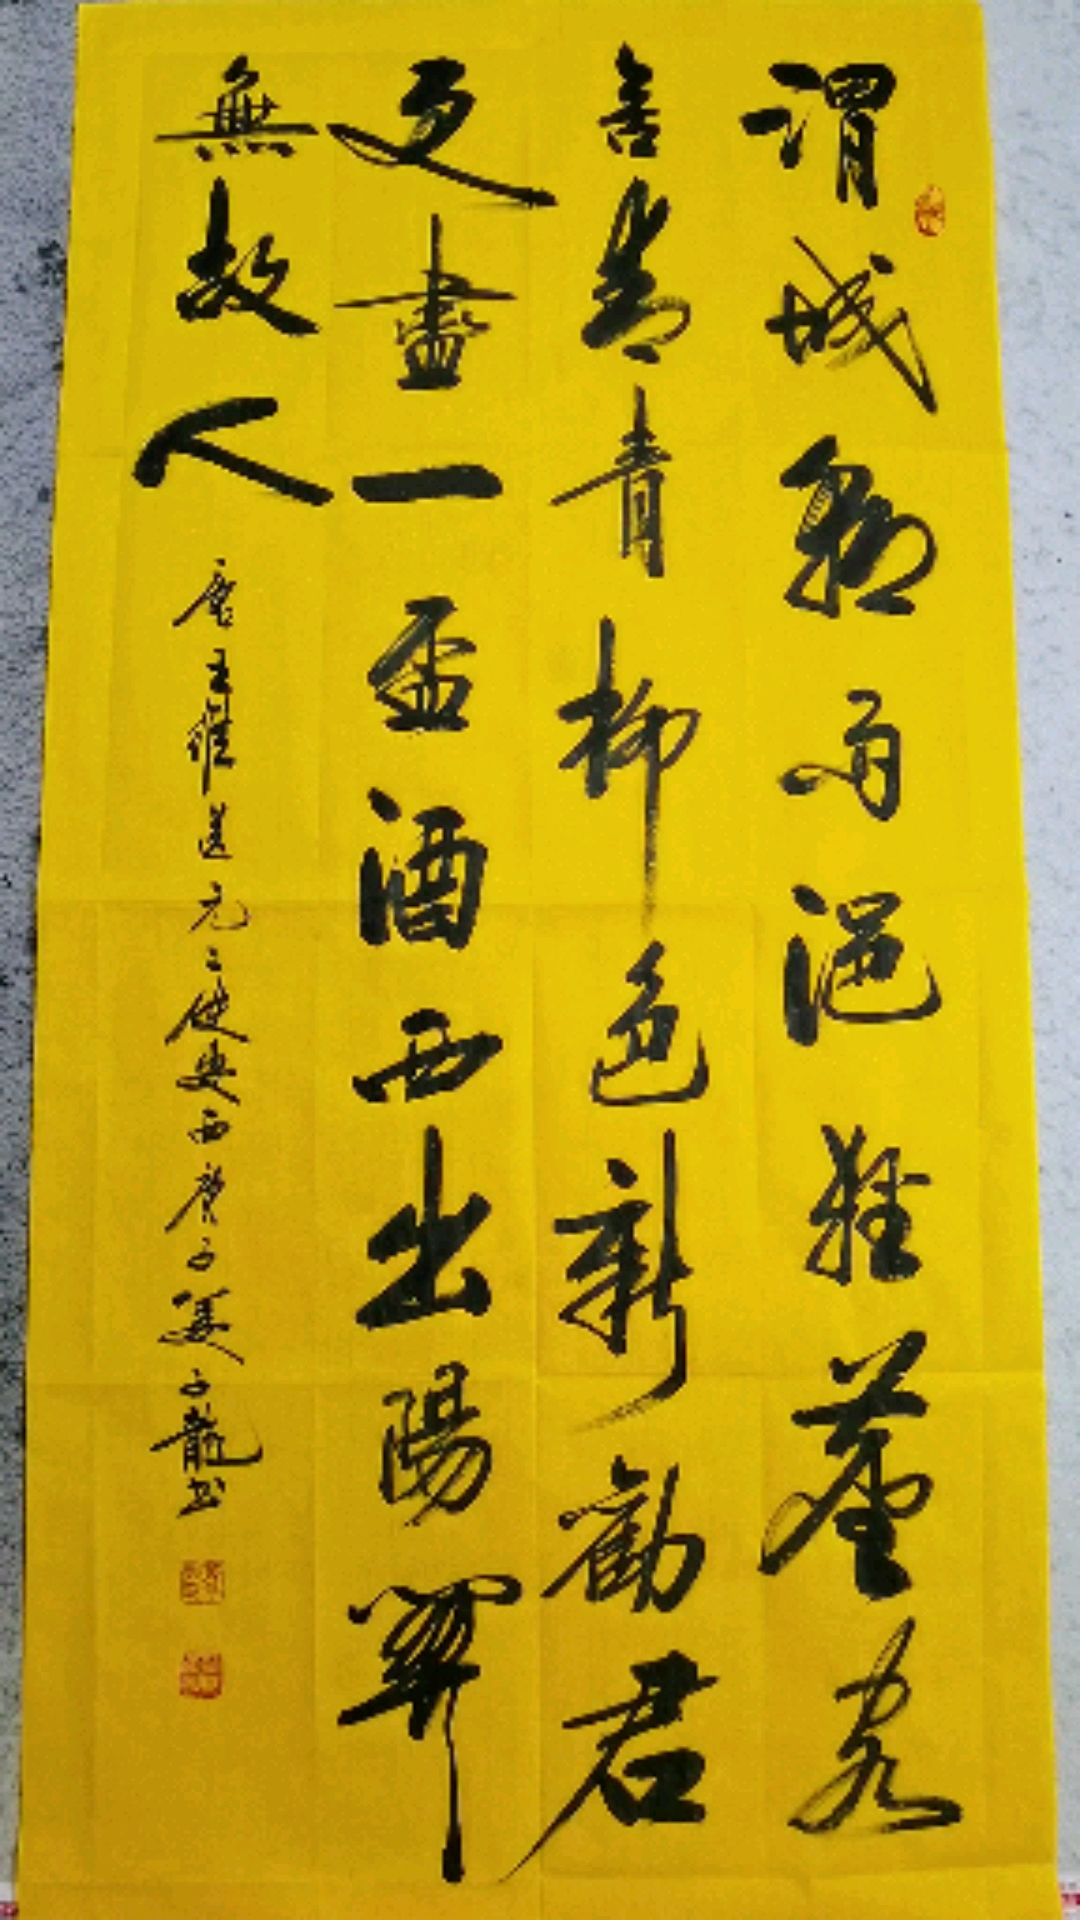 渭城朝雨浥輕塵客
舍青青柳色新勸君
更盡一盃酒西出陽關
無故人
唐王維送元二使安西庚子夏子龍书